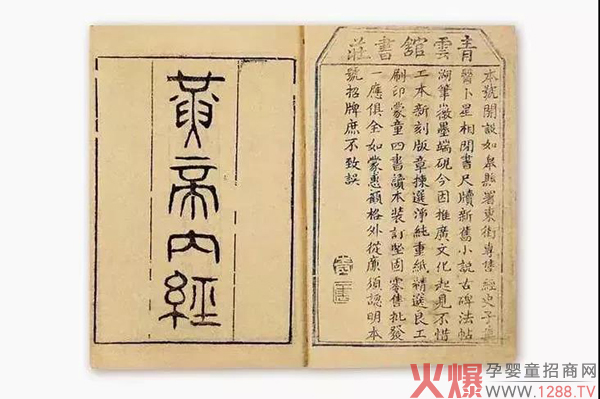 青雲舘書莊
本號開設如皋縣署東街專售經史子集
醫卜星相閒書尺牘新舊小説古碑法帖
湖筆徽墨端硯今因推廣文化起見不惜
工本新刻版章揀選淨純重紙精選良工
刷印蒙童四書讀本裝訂堅固零售批發
一應俱全如蒙惠顧格外從廉須認明本
號招牌庶不致誤
黃帝內經
火爆孕婴童招商网
www.1288.TV